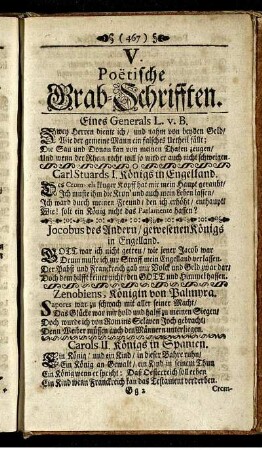 ( 467 )
V.
Poëtische
Grab-Schrifften.
Eines Generals L. v. B.
Zwey Herren diente ich / und nahm von beyden Geld /
Wie der gemeine Mann ein falsches Urtheil fällt;
Die Sau und Donau kan von meinen Thaten zeugen /
Und wenn der Rhein nicht will so wird er auch nicht schweigen.
Carl Stuards I. Königs in Engelland.
Des Crom- kluger Kopff hat mir mein Haupt geraubt /
Ich muste ihm die Kron' und auch mein Leben lassen;
Ich ward durch meinen Freund / den ich erhöht / enthaupt
Wie! solt ein König nicht das Parlament hassen?
Jacobus des Andern / gewesenen Königs
in Engelland.
GOTT war ich nicht getreu / wie jener Jacob war
Drum muste ich zur Straff mein Engelland verlassen.
Der Pabst und Franckreich gab mir Volck und Geld zwar dar
Doch dem hilfft keiner nicht / den GOTT und Himmel hassen.
Zenobiens, Königin von Palmyra.
Sapores war zu schwach mit aller seiner Macht /
Das Glücke war mir hold und halff zu meinen Siegen /
Doch wurde ich von Rom ins Sclaven Joch gebracht;
Denn Weiber müssen auch den Männern unterliegen.
Carols II. Königs in Spanien.
Ein König / und ein Kind / in dieser Bahre ruhn /
Ein König an Gewalt / ein Kind in seinem Thun
Ein König wenn er spricht: Das Oesterreich soll erben
Ein Kind wenn Franckreich kan das Testament verderben.
Gg 2
Crom-